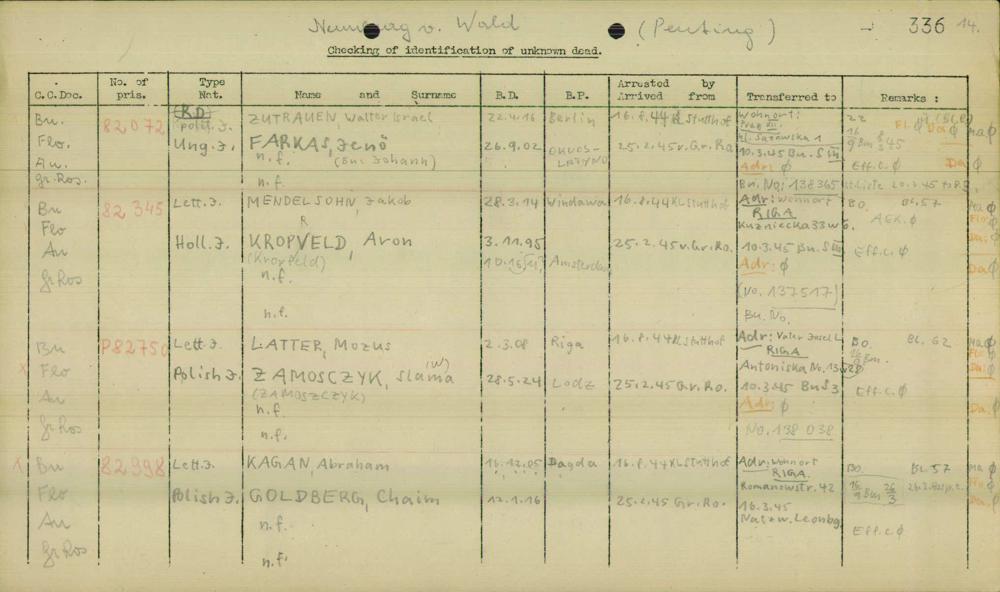 Neunburg v. Wald (Penting) → 336 14.
Checking of identification of unknown dead.
C.C.Doc. No. of pris. Type Nat. Name and Surname B.D. B.P. Arrested by Arrived from Transferred to Remarks :
Bu. 82072 RD polit. J. ZUTRAUEN, Walter Israel 22.4.16 Berlin 16.8.44 KL Stutthof Wohnort:
Flo. Ung. J. FARKAS, Jenö 26.9.02 25.2.45 v. Gr. Ro. 10.3.45 Bu. S III
Au. n.f. (Bu: Johann) Adr: Ø Eff.c. Ø Da Ø
gr. Ros. n.f. Bu. No: 138365
Bu 82345 Lett. J. MENDELSOHN, Jakob 28.3.14 Windawa 16.8.44 KL Stutthof Adr: Wohnort Bo. BL.57 Ma Ø
Flo R RIGA
Kuzniecka 33 w 6.
Au Holl. J. KROPVELD, Aron 3.11.98 25.2.45 v. Gr. Ro. 10.3.45 Bu. S III Eff.c. Ø
(Kropfeld) Amsterdam Adr: Ø Da Ø
gr Ros n.f.
(No. 137517)
n.f. Bu. No.
Bu P82750 Lett. J. LATTER, Mozus 2.3.08 Riga 16.8.44 KL Stutthof Adr: Vater Josel L Bo. BL. 62 Ma Ø
RIGA
x Flo Polish J. ZAMOSCZYK, Slama (w) 28.5.24 Lodz 25.2.45 Gr. Ro. 10.3.45 Bu S 3 Eff.c. Ø
Au (ZAMOSZCZYK) Adr: Ø Da. Ø
n.f.
gr Ros n.f. No. 138 038
x Bu 82998 Lett. J. KAGAN, Abraham 16.12.05 Dagda 16.8.44 KL Stutthof Adr: Wohnort Bo. BL.57 Ma Ø
RIGA.
Romanowstr. 42
Flo Polish J. GOLDBERG, Chaim 12.1.16 25.2.45 Gr. Ro. 16.3.45
Au n.f. Natzw. Leonbg. Eff.c. Ø
gr Ros n.f.